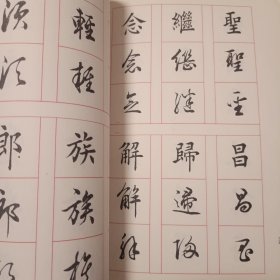 聖聖聖
繼繼繼
念念念
昌昌昌
歸歸歸
解解解
輕輕
須須
族族族
郎郎